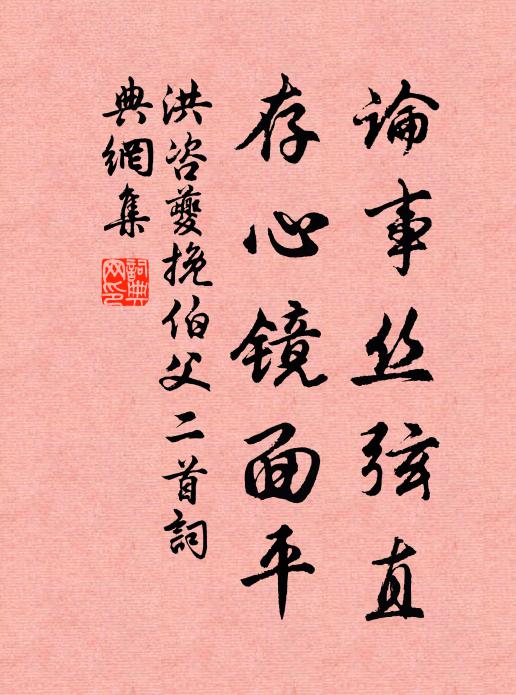 論事丝弦直
存心镜面平
洪咨夔挽伯父二首詞
典網集
詞典网印